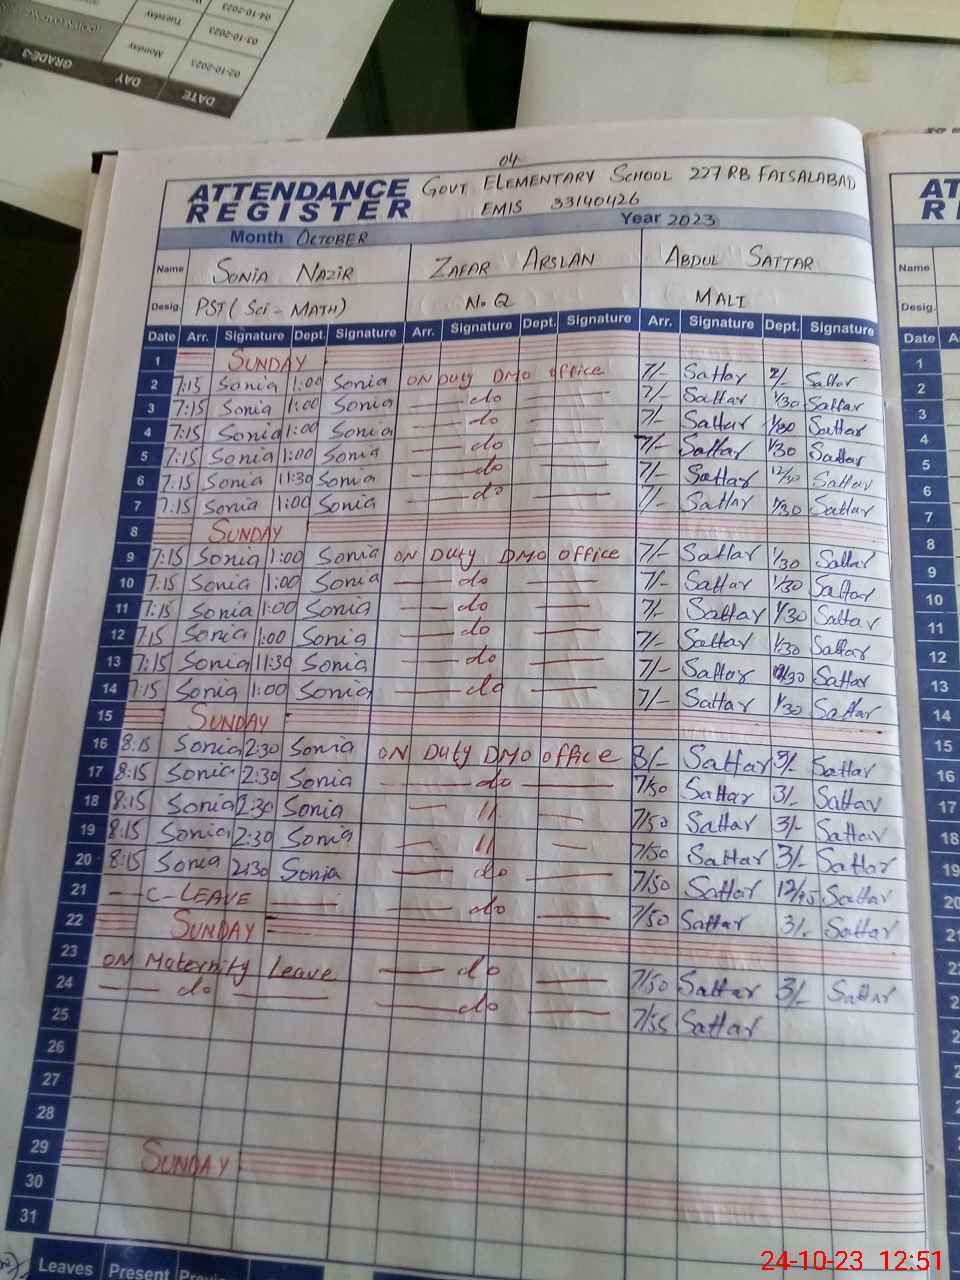 04
ATTENDANCE REGISTER
GOVT ELEMENTARY SCHOOL 227 RB FAISALABAD
EMIS 33140426
Month OCTOBER Year 2023
Name SONIA NAZIR ZAFAR ARSLAN ABDUL SATTAR
Desig. PST (SCI - MATH) N.Q MALI
Date Arr. Signature Dept. Signature Arr. Signature Dept. Signature Arr. Signature Dept. Signature
1 SUNDAY
2 7:15 Sonia 1:00 Sonia ON Duty DMO office 7/- Sattar 2/- Sattar
3 7:15 Sonia 1:00 Sonia — do — 7/- Sattar 1/30 Sattar
4 7:15 Sonia 1:00 Sonia — do — 7/- Sattar 1/30 Sattar
5 7:15 Sonia 1:00 Sonia — do — 7/- Sattar 1/30 Sattar
6 7:15 Sonia 11:30 Sonia — do — 7/- Sattar 12/30 Sattar
7 7:15 Sonia 1:00 Sonia — do — 7/- Sattar 1/30 Sattar
8 SUNDAY
9 7:15 Sonia 1:00 Sonia ON Duty DMO office 7/- Sattar 1/30 Sattar
10 7:15 Sonia 1:00 Sonia — do — 7/- Sattar 1/30 Sattar
11 7:15 Sonia 1:00 Sonia — do — 7/- Sattar 1/30 Sattar
12 7:15 Sonia 1:00 Sonia — do — 7/- Sattar 1/30 Sattar
13 7:15 Sonia 11:30 Sonia — do — 7/- Sattar Sattar
14 7:15 Sonia 1:00 Sonia — do — 7/- Sattar 1/30 Sattar
15 SUNDAY
16 8:15 Sonia 2:30 Sonia ON Duty DMO office 8/- Sattar 3/- Sattar
17 8:15 Sonia 2:30 Sonia — do — 7/50 Sattar 3/- Sattar
18 8:15 Sonia 2:30 Sonia — 11 — 7/50 Sattar 3/- Sattar
19 8:15 Sonia 2:30 Sonia — 11 — 7/50 Sattar 3/- Sattar
20 8:15 Sonia 2:30 Sonia — do — 7/50 Sattar 12/45 Sattar
21 — C-LEAVE — — do — 7/50 Sattar 3/- Sattar
22 SUNDAY
23 ON Maternity Leave — do — 7/50 Sattar 3/- Sattar
24 — do — — do — 7/55 Sattar
25
26
27
28
29 SUNDAY
30
31
Leaves Present
DATE DAY GRADE-3
02-10-2023 Monday
03-10-2023 Tuesday
04-10-2023
Name
Desig.
Date
1
2
3
4
5
6
7
8
9
10
11
12
13
14
15
16
17
18
19
20
21
24-10-23 12:51